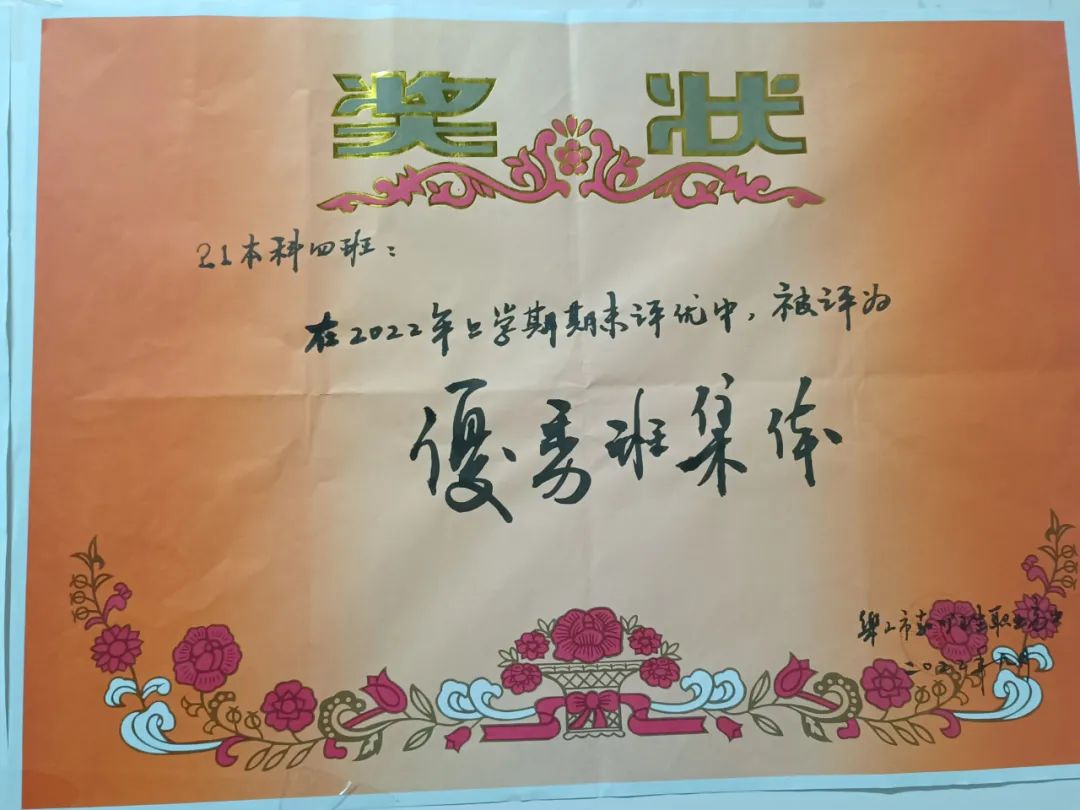 奖状
21本科四班：
在2022年上学期期末评优中，被评为
優秀班集体
乐山市 职业高中
二〇二二年 月